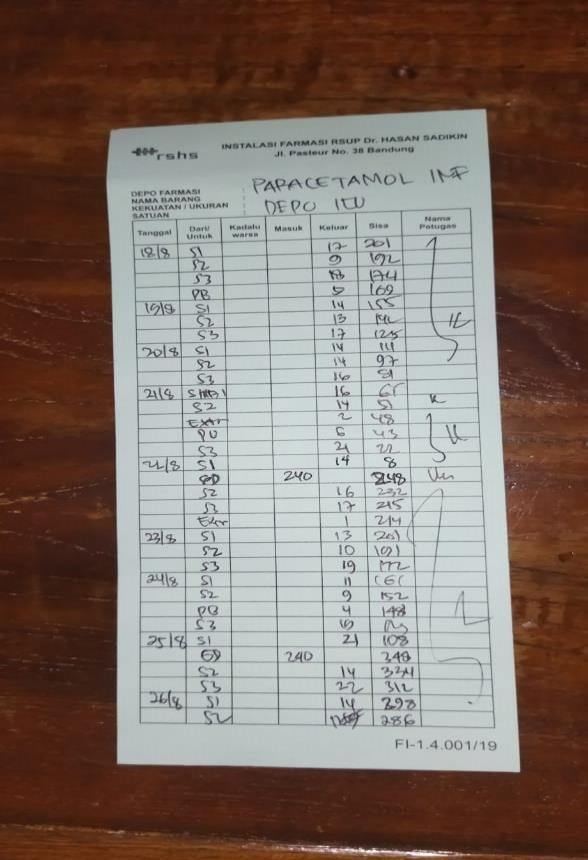 rshs
INSTALASI FARMASI RSUP Dr. HASAN SADIKIN
Jl. Pasteur No. 38 Bandung
DEPO FARMASI :
NAMA BARANG : PARACETAMOL INF
KEKUATAN / UKURAN : DEPO ICU
SATUAN
Tanggal Dari/Untuk Kadalu warsa Masuk Keluar Sisa Nama Petugas
18/8 S1 17 201
S2 9 192
S3 18 174
PB 5 169
19/8 S1 14 155
S2 13 142
S3 17 125
20/8 S1 14 111
S2 14 97
S3 16 81
21/8 16 65
S2 14 51
Extr 2 48
6 43
S3 21 22
22/8 S1 14 8
240 248
S2 16 232
S3 17 215
Extr 1 214
23/8 S1 13 201
S2 10 191
S3 19 172
24/8 S1 11 161
S2 9 152
PB 4 148
S3
25/8 S1 21 108
240 348
S2 14 334
S3 22 312
26/8 S1 14 298
S2 286
FI-1.4.001/19